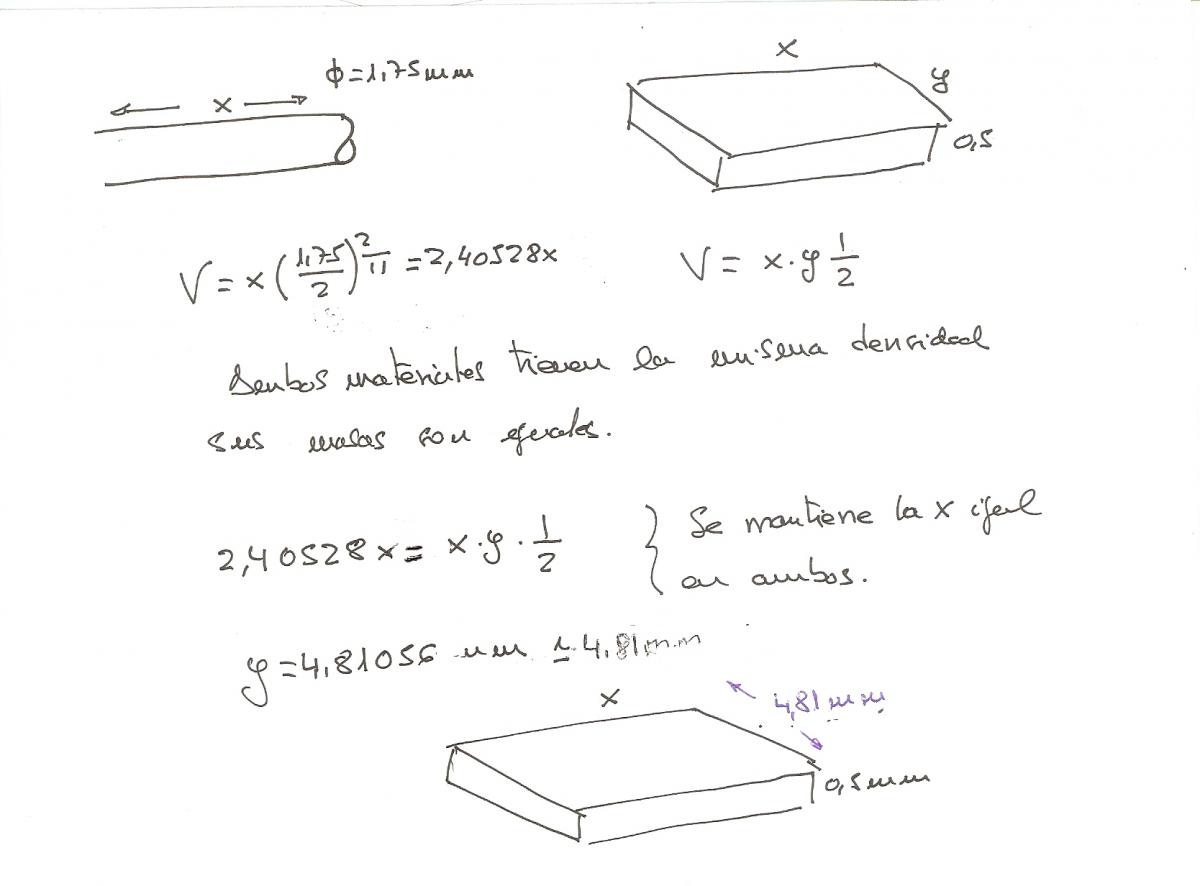 ϕ=1,75mm
x
x
y
0,5
V = x (1,75/2)² π = 2,40528x
V = x·y 1/2
Ambos materiales tienen la misma densidad
sus masas son iguales.
2,40528x = x·y·1/2 } Se mantiene la x igual
en ambos.
y = 4,81056 mm ≃ 4,81mm
x
4,81mm
0,5mm